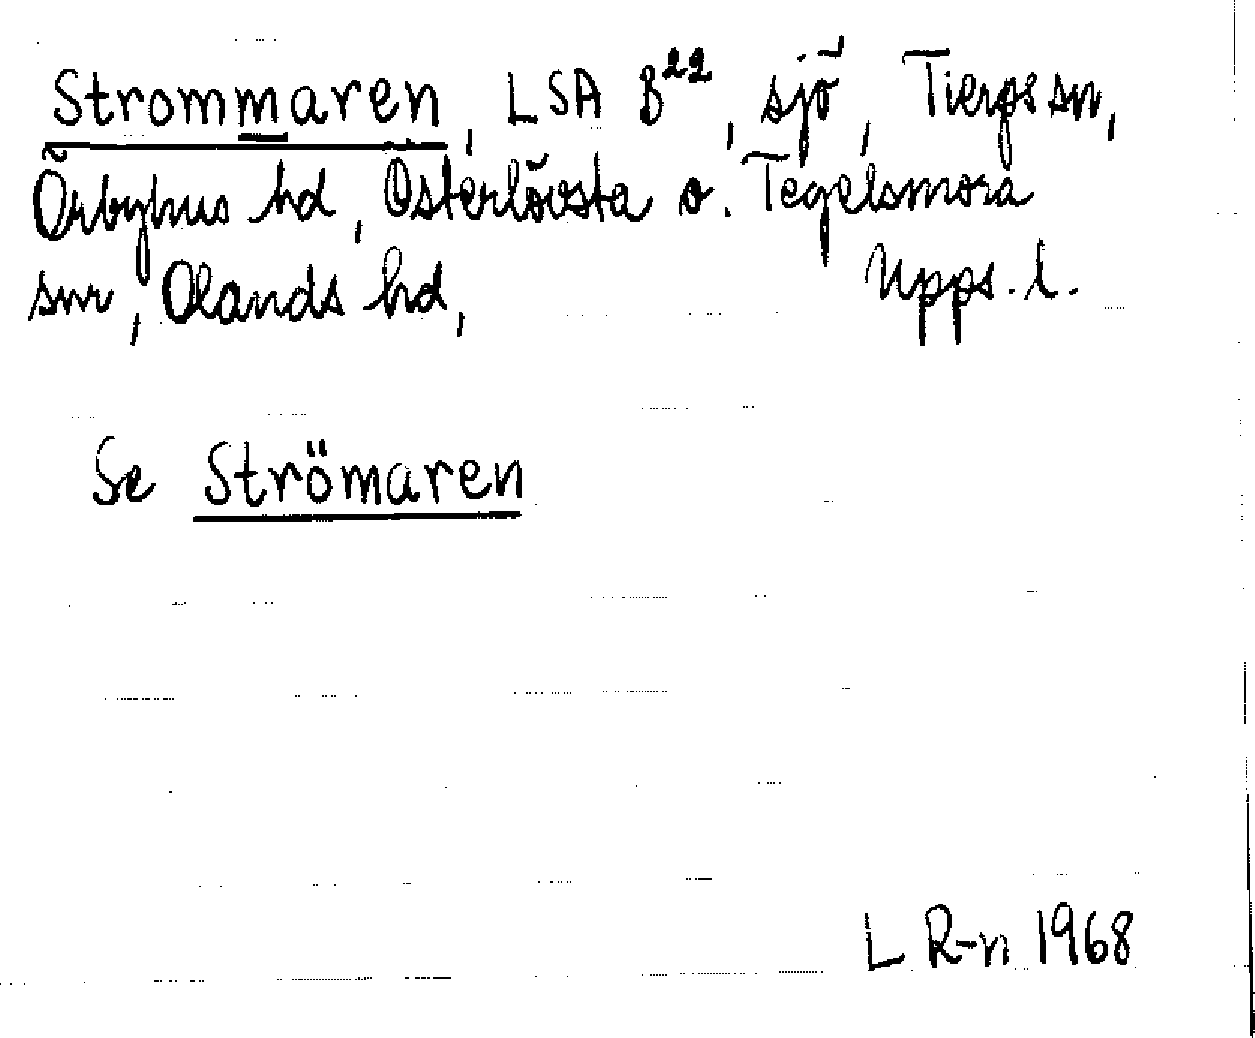 Strommaren, LSA B22, sjö, Tierps sn,
Örbyhus hd, Österlövsta o. Tegelsmora
snr, Olands hd, Upps. l.
Se Strömaren
L R-n 1968